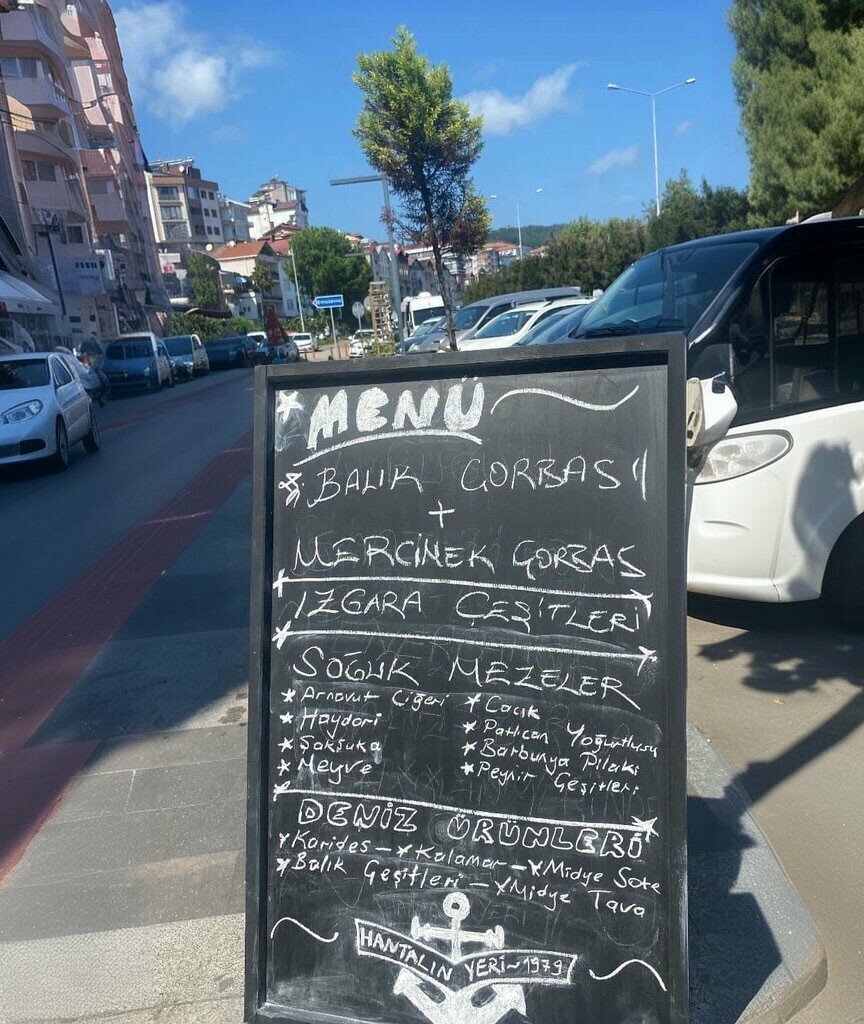 MENÜ
BALIK ÇORBASI
+
MERCİMEK ÇORBAS
IZGARA ÇEŞİTLERİ
SOĞUK MEZELER
* Arnavut Ciğeri * Cacık
* Haydari * Patlıcan Yoğurtlusu
* Şakşuka * Barbunya Pilaki
* Meyve * Peynir Çeşitleri
DENİZ ÜRÜNLERİ
* Karides – * Kalamar – * Midye Sote
* Balık Çeşitleri – * Midye Tava
HANTALIN YERİ~1979